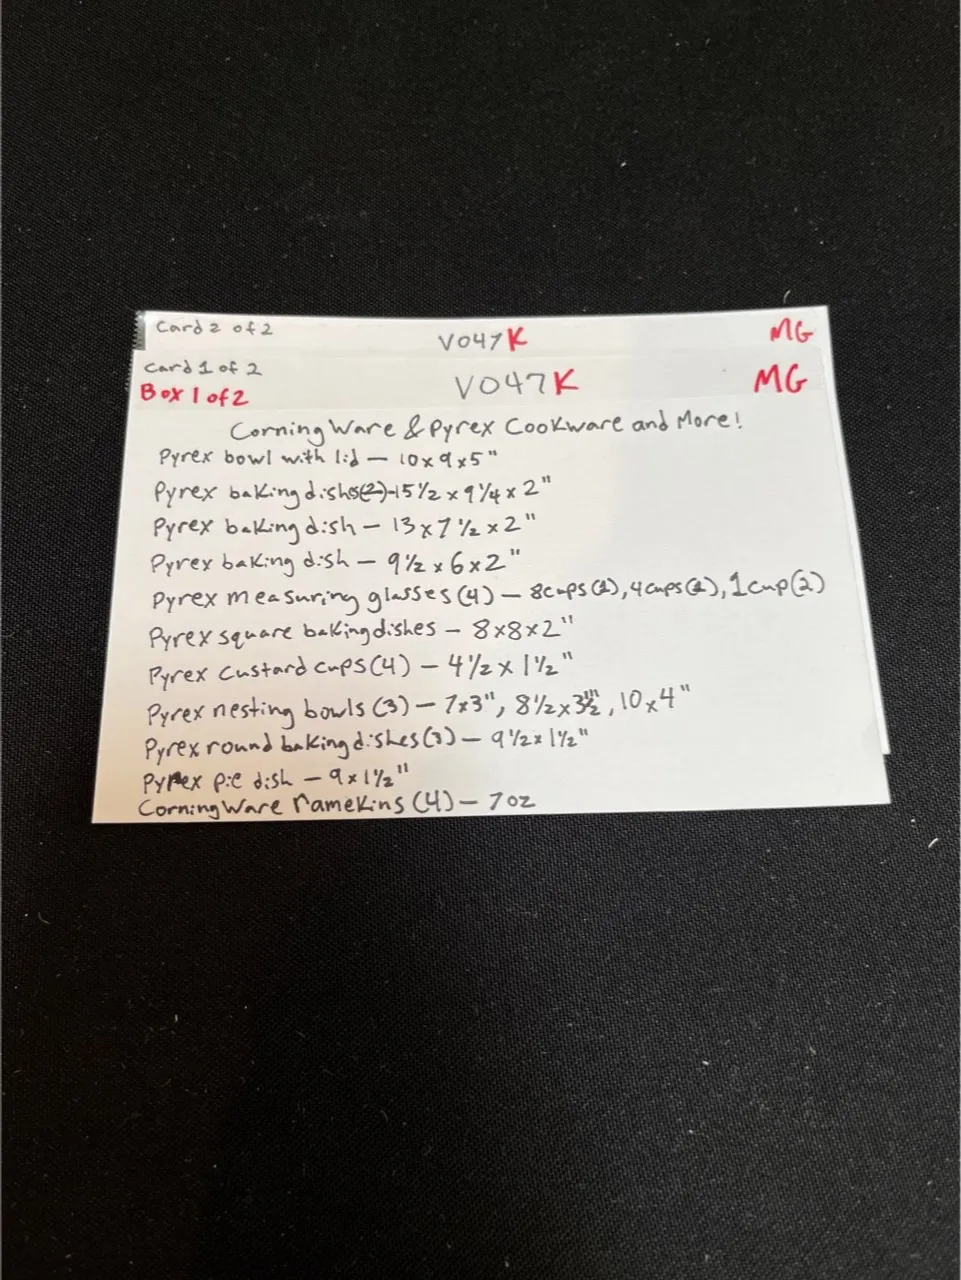 Card 2 of 2 V047K MG
Card 1 of 2
Box 1 of 2 V047K MG
CorningWare & Pyrex Cookware and More!
Pyrex bowl with lid – 10x9x5"
Pyrex baking dishes(2)-15 1/2 x 9 1/4 x 2"
Pyrex baking dish – 13 x 7 1/2 x 2"
Pyrex baking dish – 9 1/2 x 6 x 2"
Pyrex measuring glasses (4) – 8cups, 4cups, 1cup(2)
Pyrex square baking dishes – 8x8x2"
Pyrex custard cups (4) – 4 1/2 x 1 1/2"
Pyrex nesting bowls (3) – 7x3", 8 1/2 x 3 1/2", 10x4"
Pyrex round baking dishes (3) – 9 1/2 x 1 1/2"
Pyrex pie dish – 9 x 1 1/2"
CorningWare ramekins (4) – 7 oz